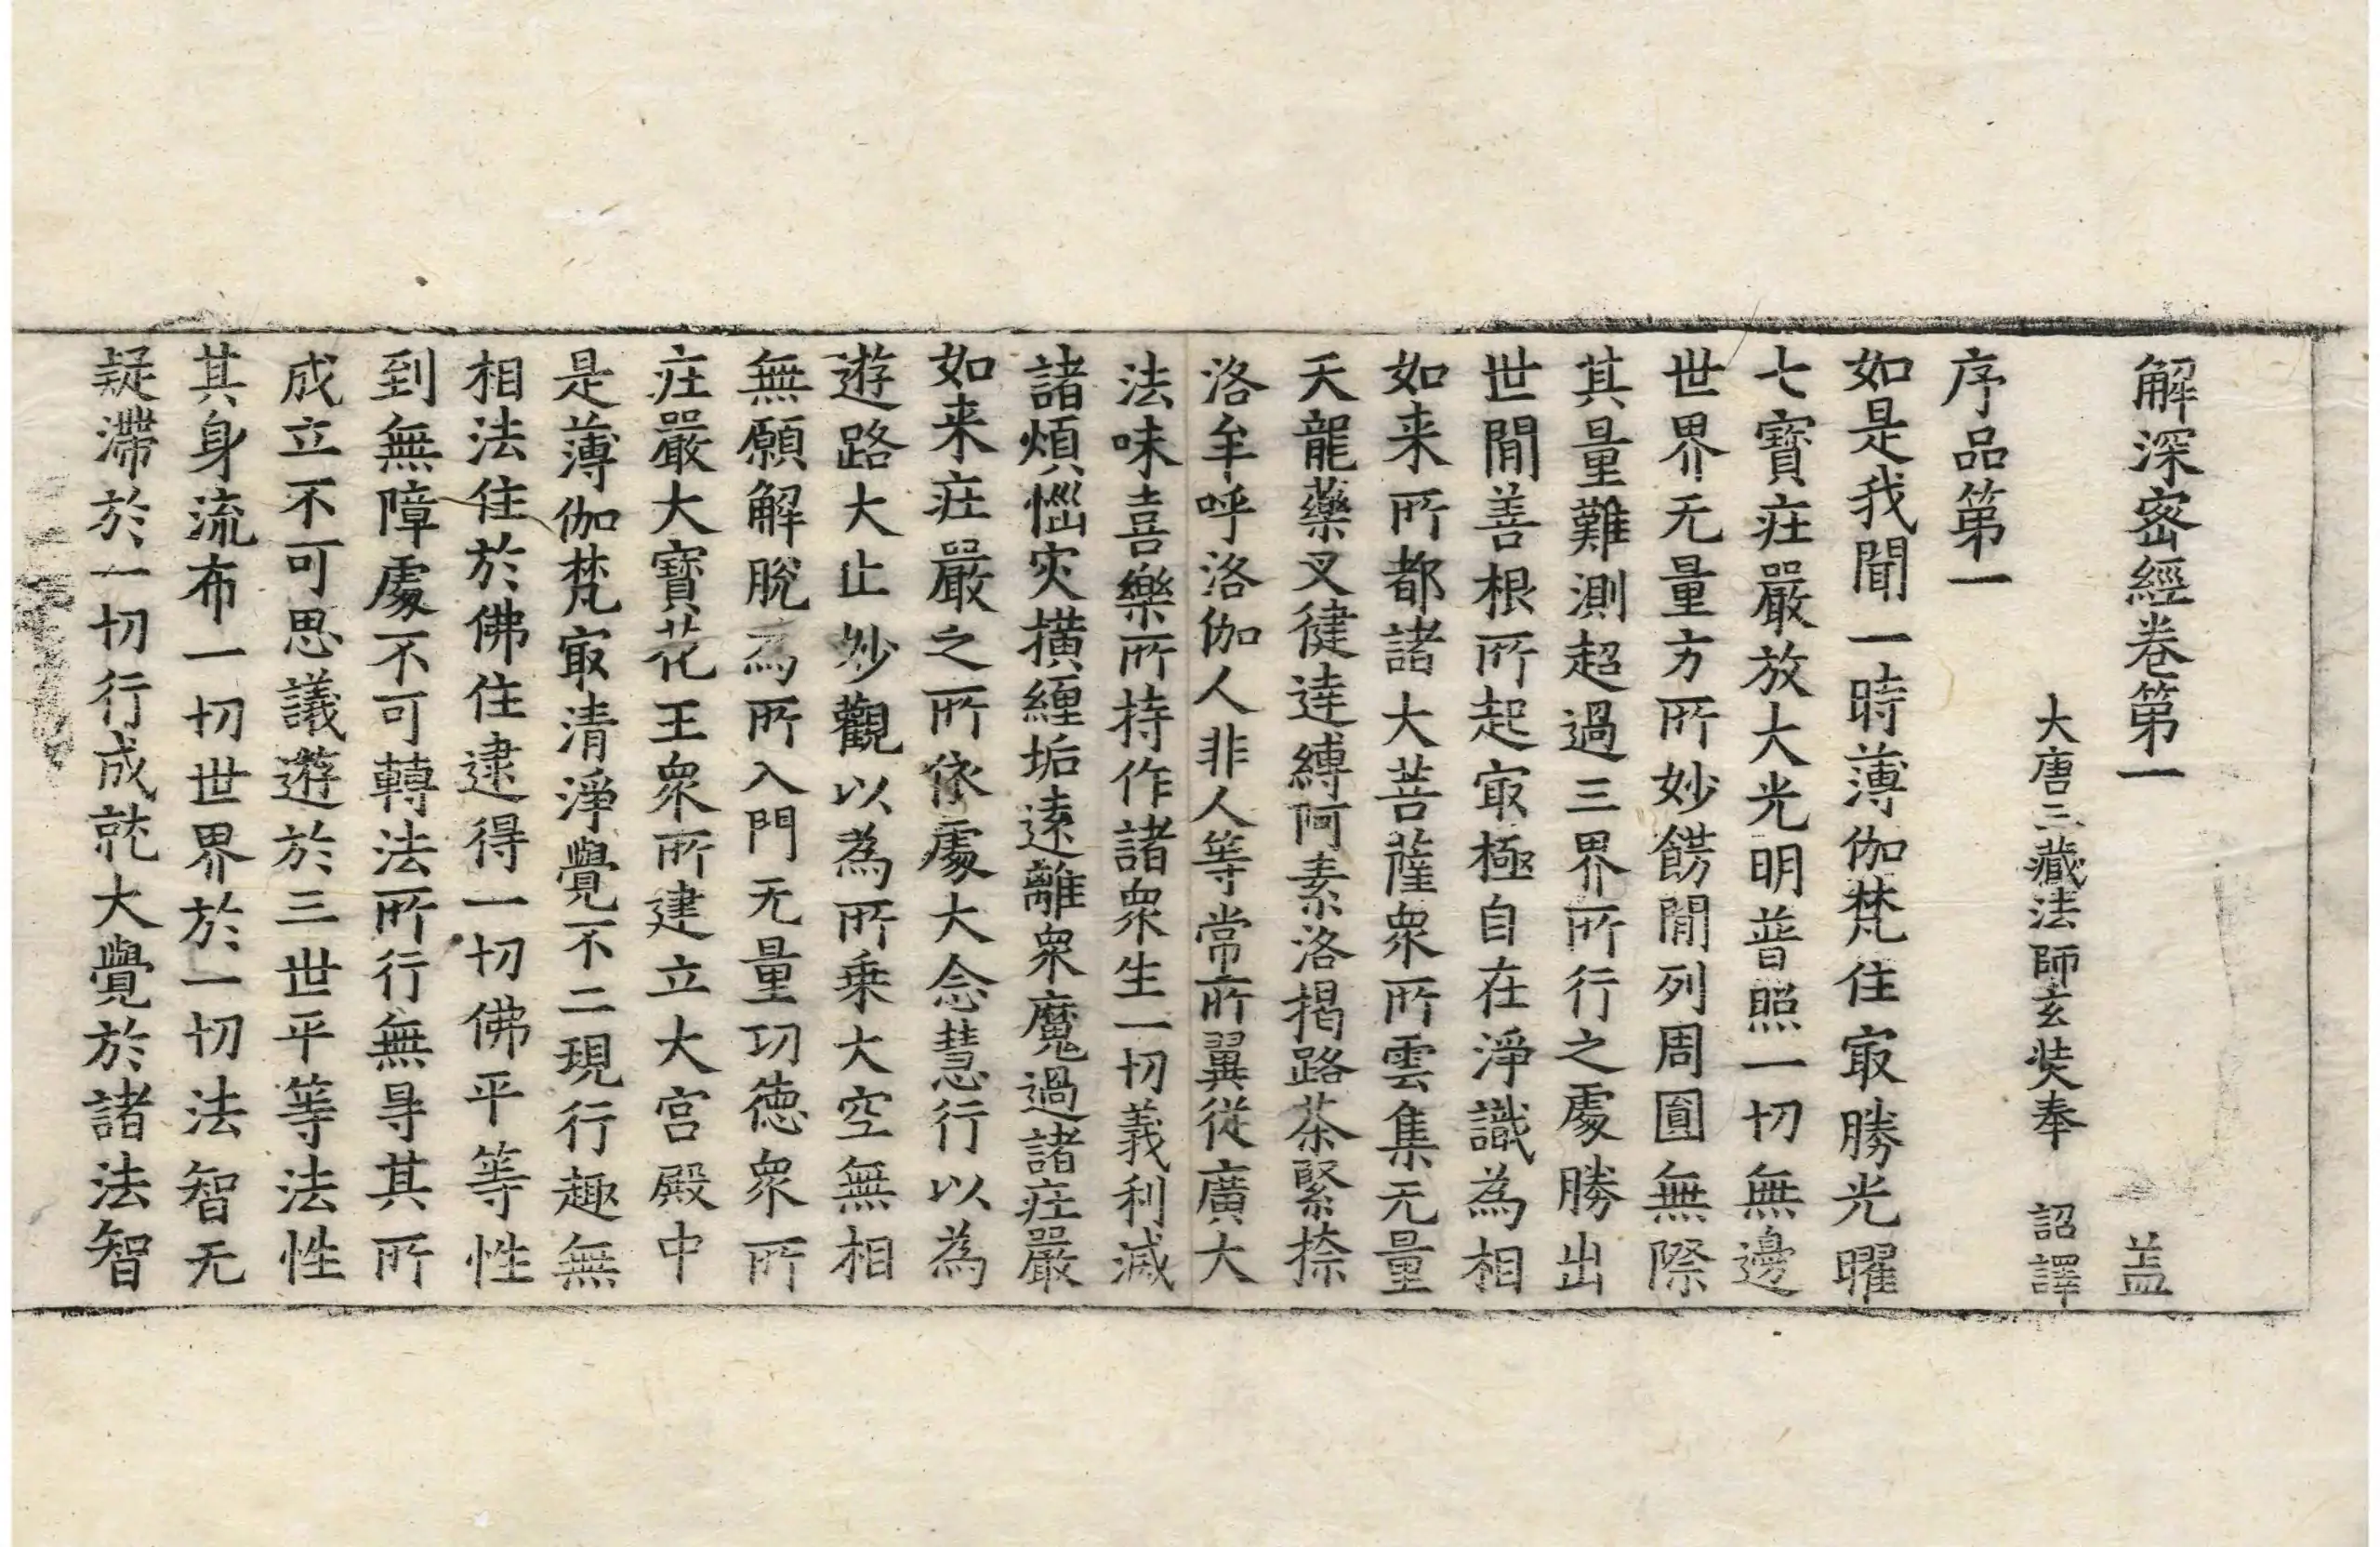 解深密經卷第一　盖
大唐三藏法師玄奘奉　詔譯
序品第一
如是我聞一時薄伽梵住㝡勝光曜
七寶莊嚴放大光明普照一切無邊
世界无量方所妙餝間列周圎無際
其量難測超過三界所行之處勝出
世間善根所起㝡極自在淨識為相
如来所都諸大菩薩衆所雲集无量
天龍藥叉健達縛阿素洛揭路荼緊捺
洛牟呼洛伽人非人等常所翼從廣大
法味喜樂所持作諸衆生一切義利滅
諸煩惱灾撗纏垢遠離衆魔過諸莊嚴
如来莊嚴之所依處大念慧行以為
遊路大止妙觀以為所乗大空無相
無願解脫為所入門无量㓛德衆所
莊嚴大寶花王衆所建立大宫殿中
是薄伽梵㝡清淨覺不二現行趣無
相法住於佛住逮得一切佛平等性
到無障處不可轉法所行無㝵其所
成立不可思議遊於三世平等法性
其身流布一切世界於一切法智无
疑滯於一切行成就大覺於諸法智